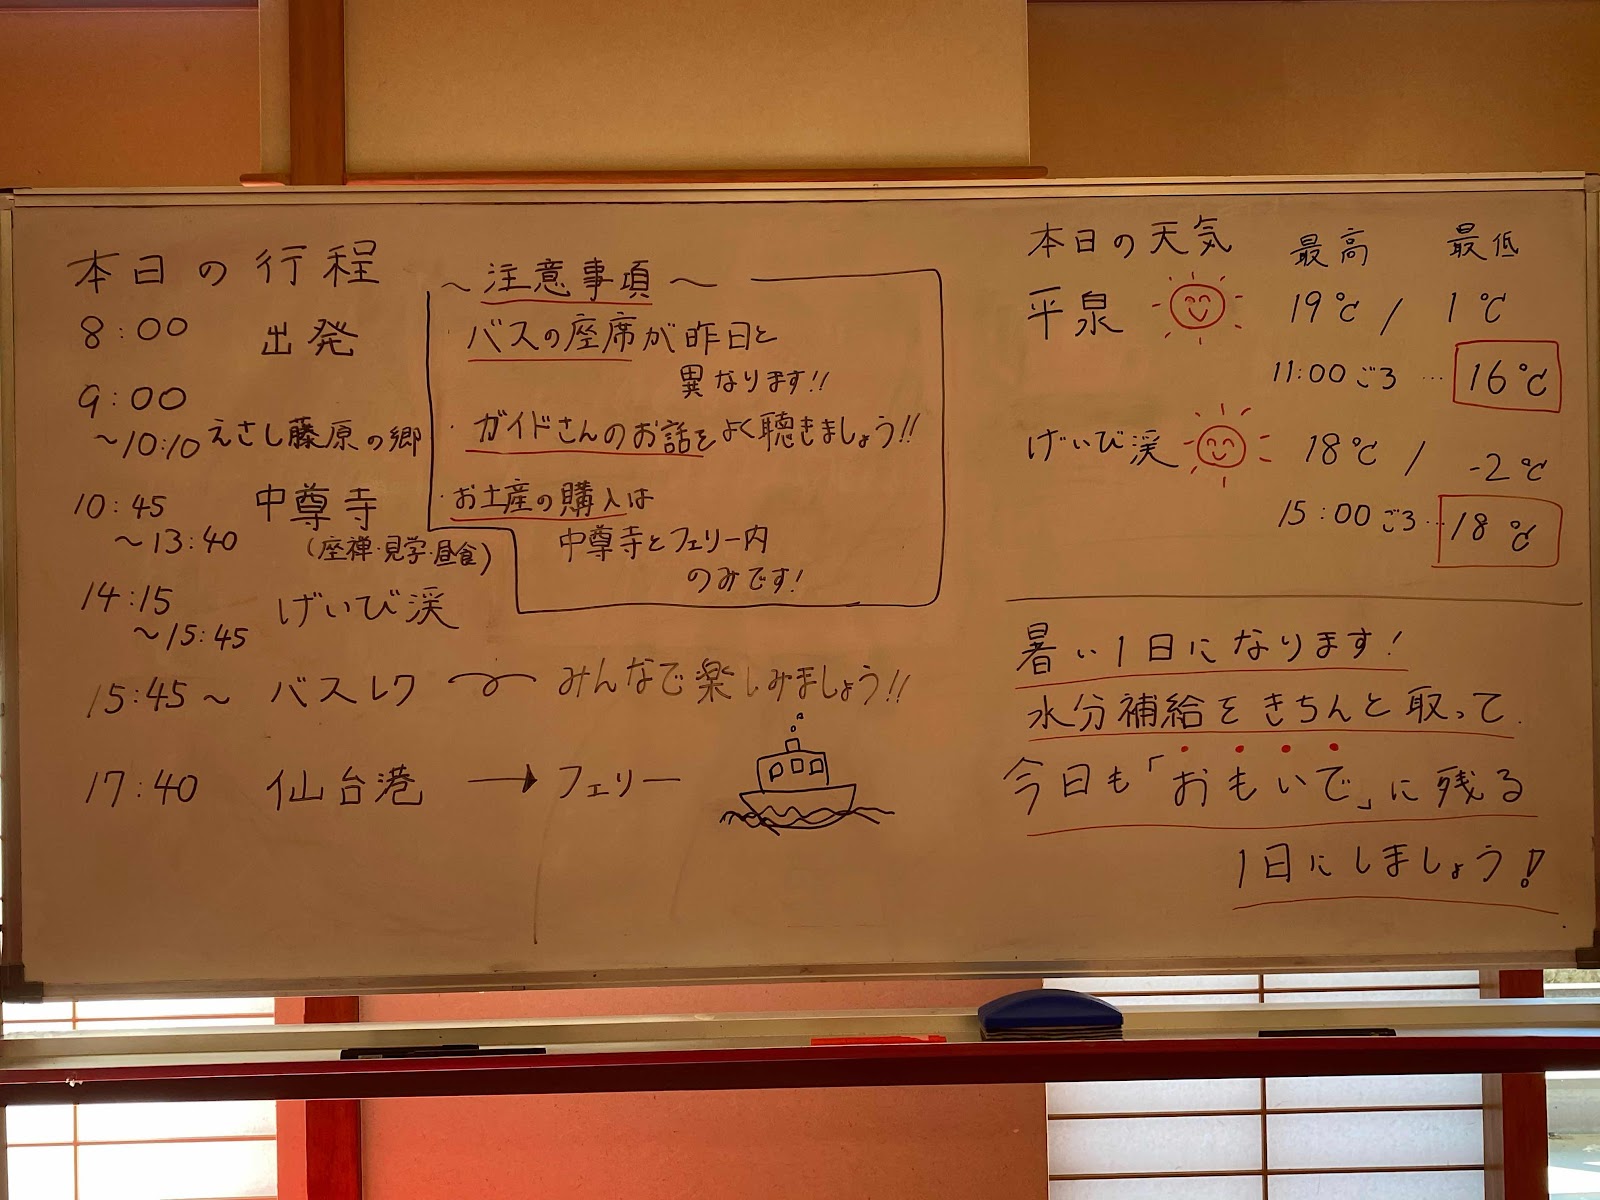 本日の行程
8:00 出発
9:00
~10:10 えさし藤原の郷
10:45 中尊寺
~13:40 (座禅・見学・昼食)
14:15 げいび渓
~15:45
15:45~ バスレク みんなで楽しみましょう!!
17:40 仙台港 → フェリー
~注意事項~
・バスの座席が昨日と
異なります!!
・ガイドさんのお話をよく聴きましょう!!
・お土産の購入は
中尊寺とフェリー内
のみです!
本日の天気 最高 最低
平泉 19℃ / 1℃
11:00ごろ … 16℃
げいび渓 18℃ / -2℃
15:00ごろ … 18℃
暑い1日になります!
水分補給をきちんと取って
今日も「おもいで」に残る
1日にしましょう!